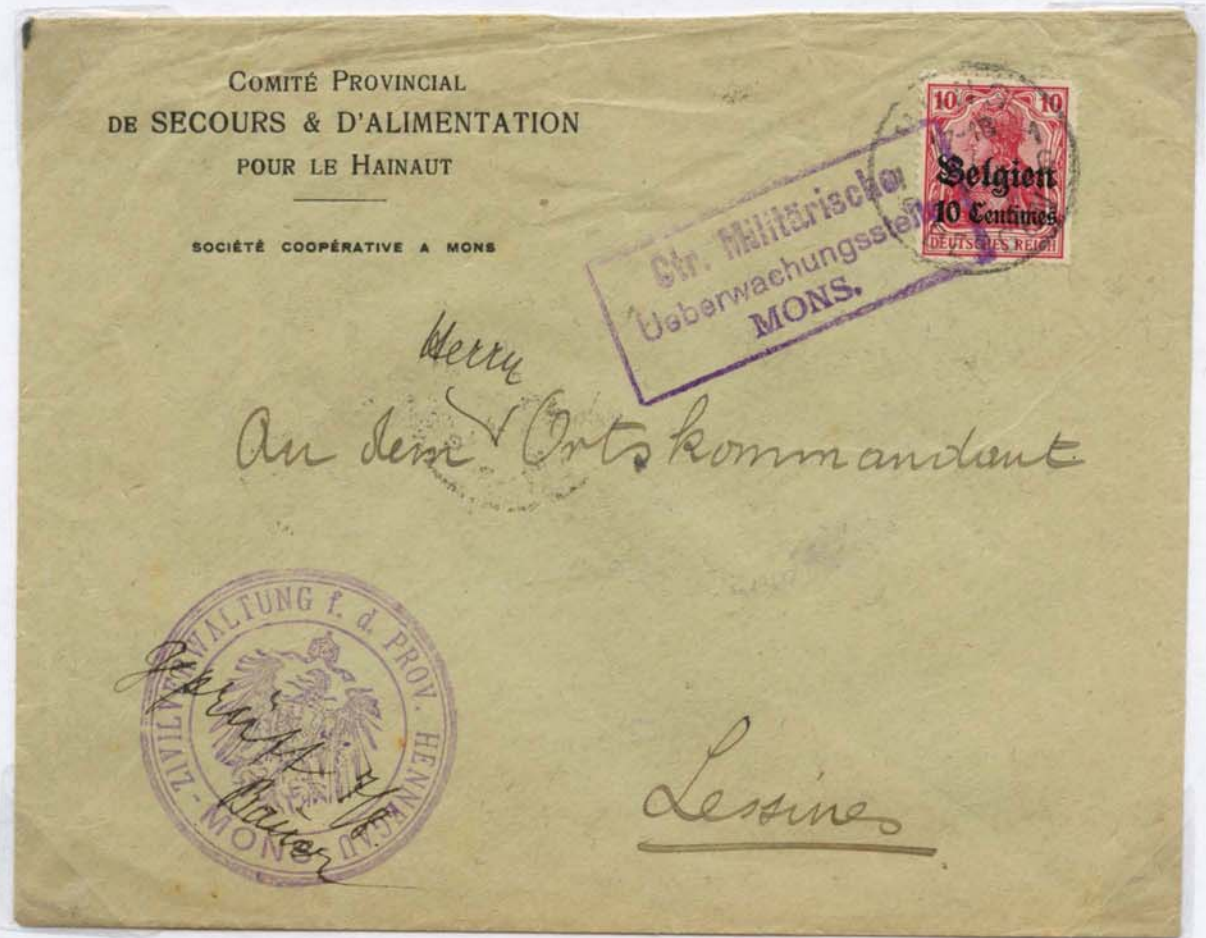 COMITÉ PROVINCIAL
DE SECOURS & D'ALIMENTATION
POUR LE HAINAUT
SOCIÉTÉ COOPÉRATIVE A MONS
10 10
Belgien
10 Centimes
DEUTSCHES REICH
Ctr. Militärische
Ueberwachungsstelle
MONS.
Herrn
An dem Ortskommandant
Lessines
ZIVILVERWALTUNG f. d. PROV. HENNEGAU
- MONS -
Geprüft